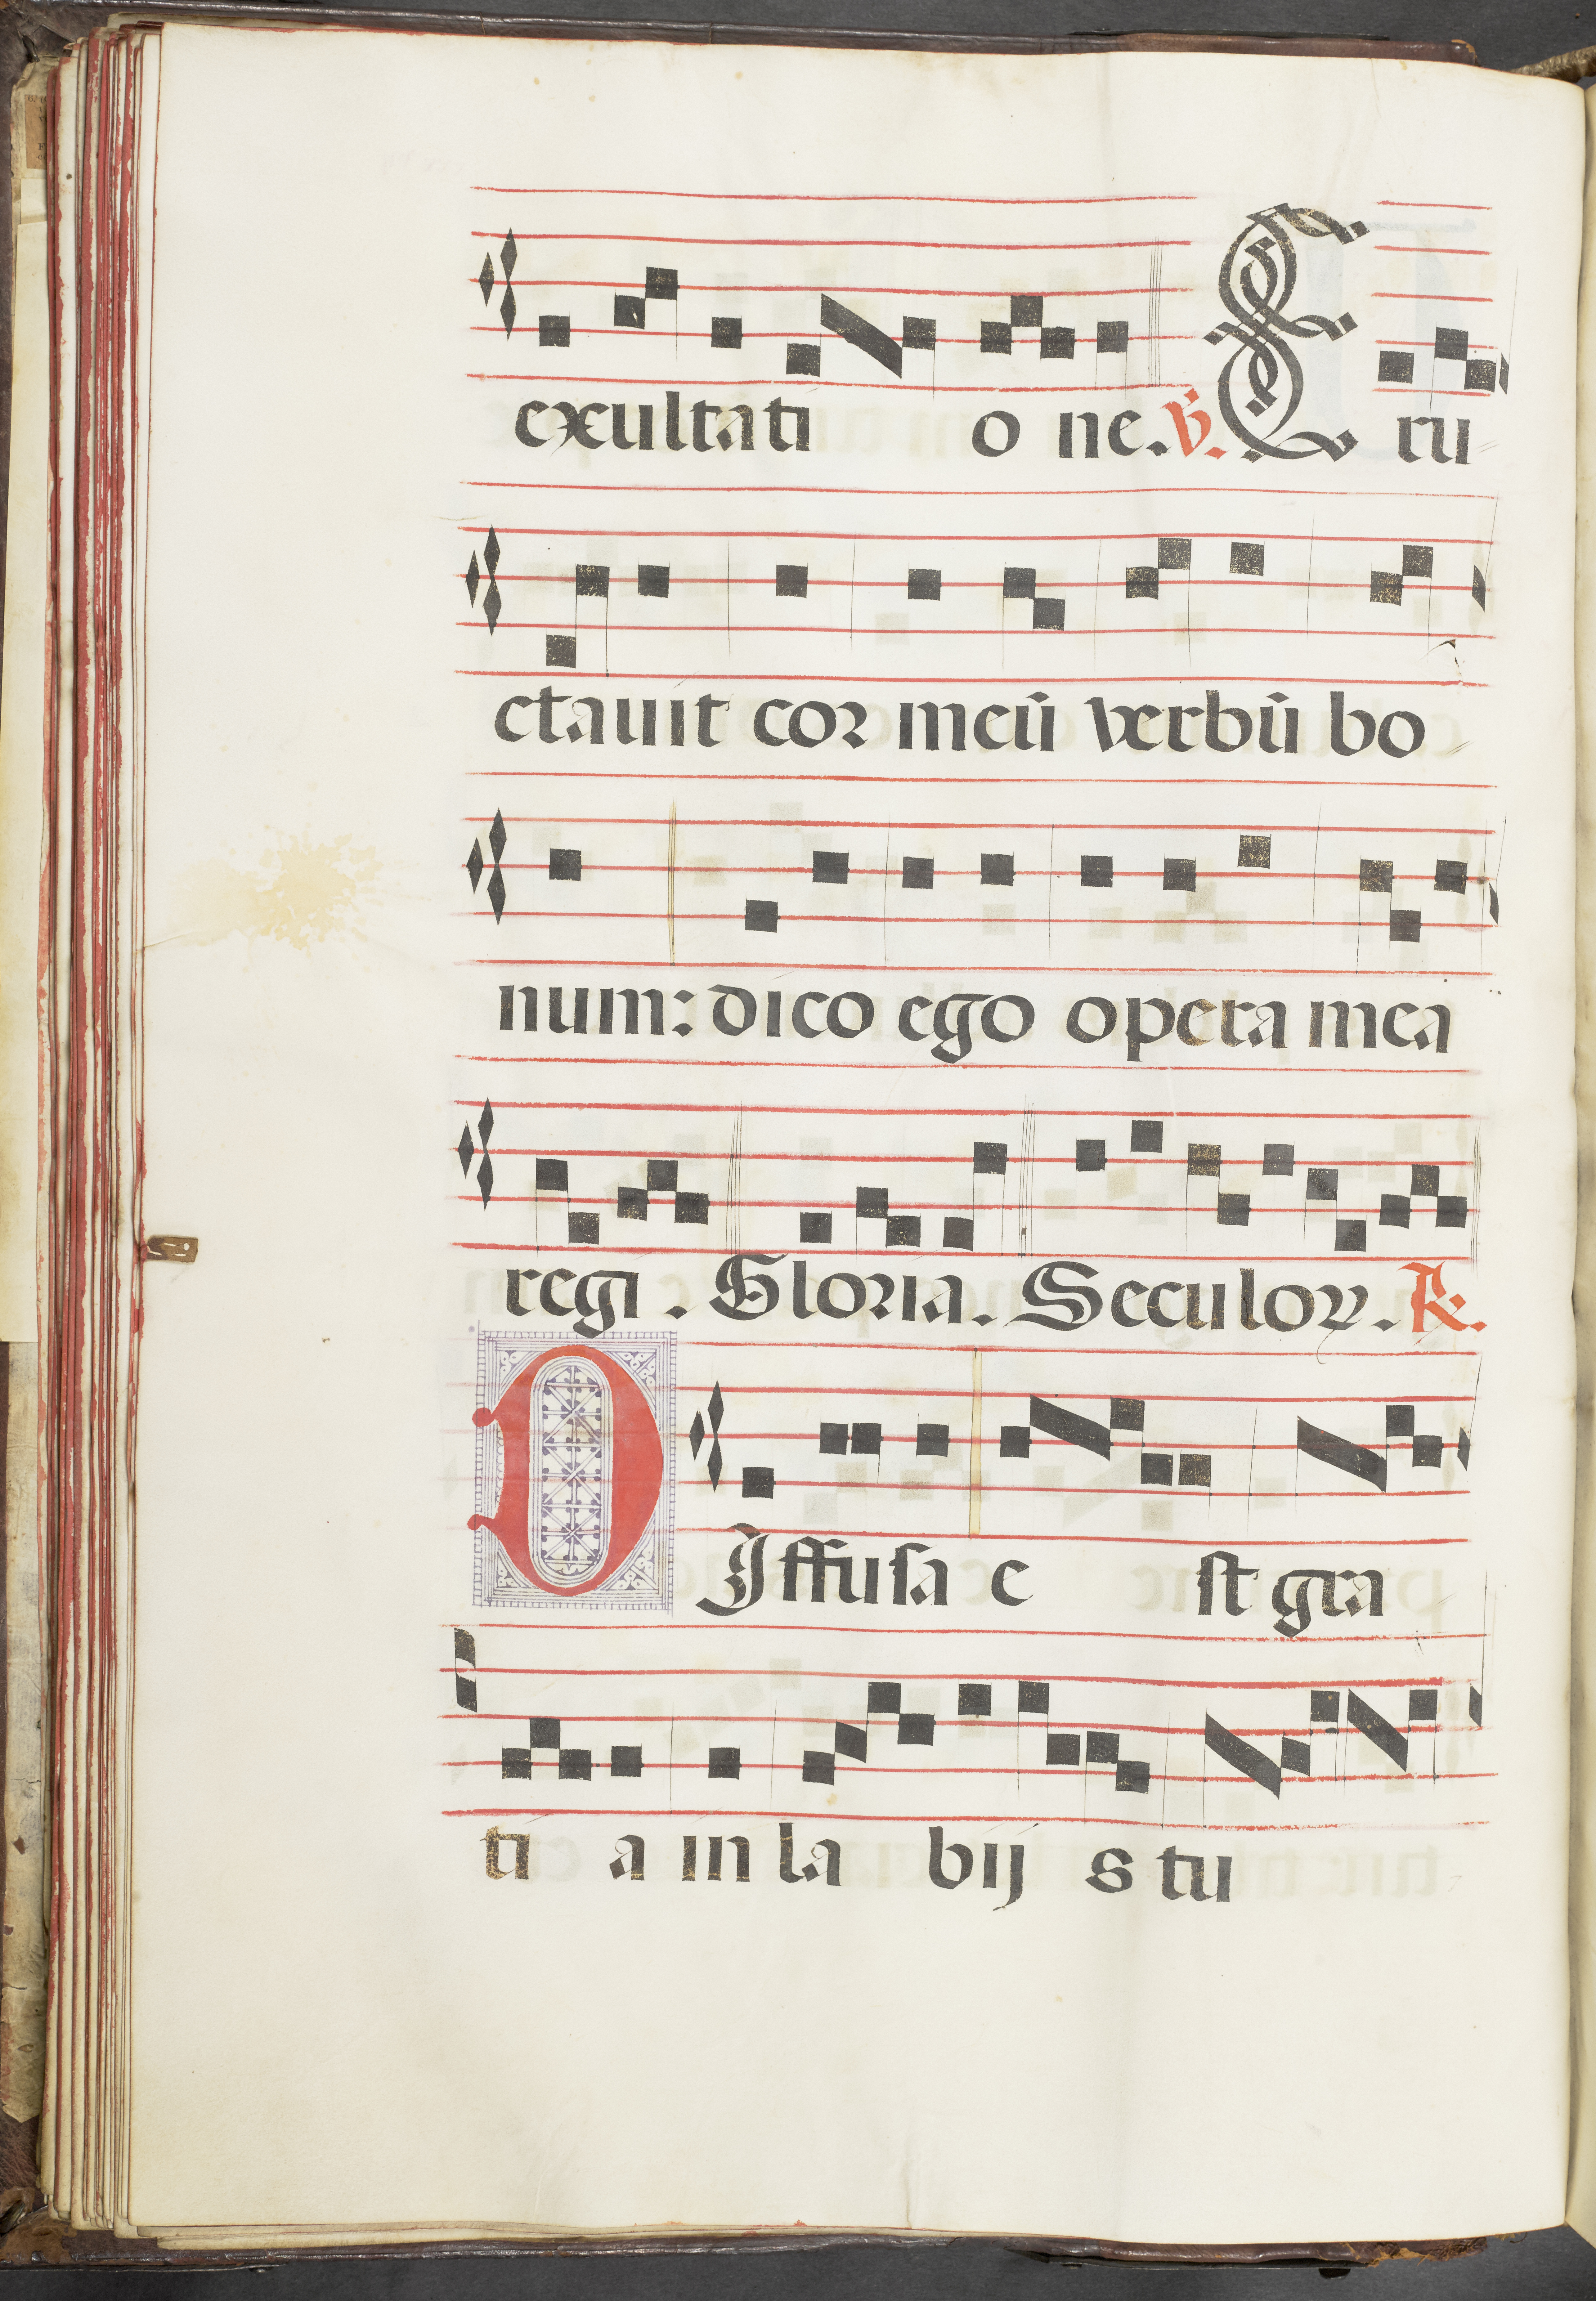 exultati o ne. ℣. Eru
ctauit cor meū verbū bo
num: dico ego opera mea
regi. Gloria. Seculoꝝ. ℟.
DIffusa e st gra
ti a in la bij s tu